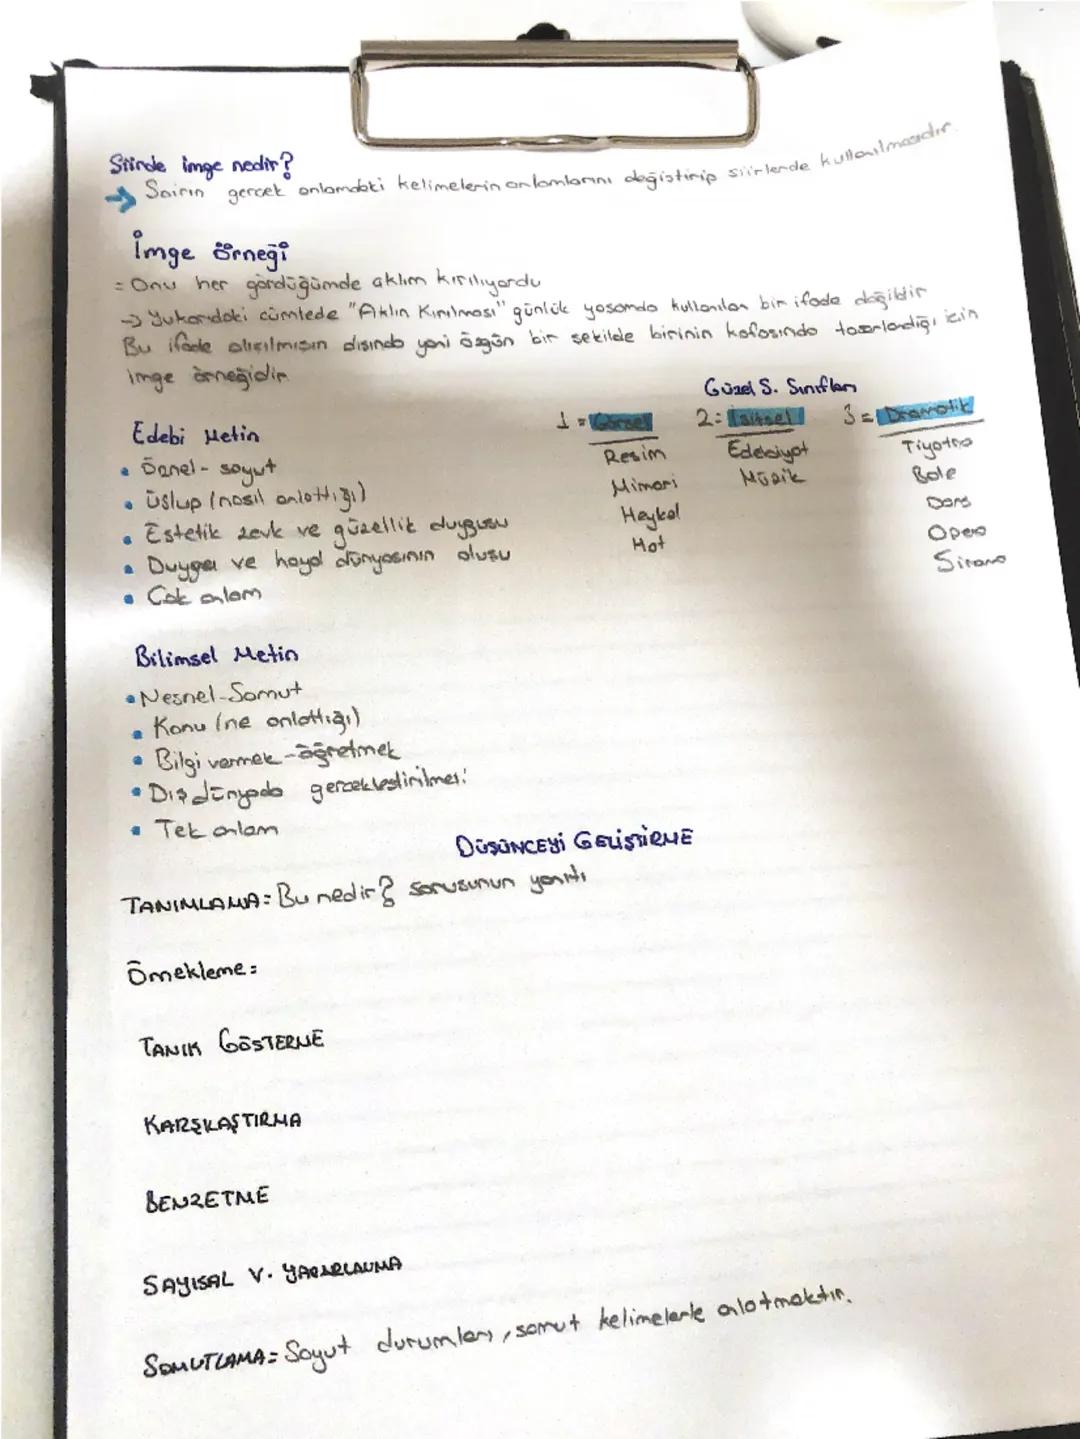 Şiirde imge nedir?
→ Şairin gerçek anlamdaki kelimelerin anlamlarını değiştirip şiirlerde kullanılmasıdır.
İmge örneği
= Onu her gördüğümde aklım kırılıyordu
→ Yukarıdaki cümlede "Aklın Kırılması" günlük yaşamda kullanılan bir ifade değildir
Bu ifade alışılmışın dışında yani özgün bir şekilde birinin kafasında tasarlandığı için
imge örneğidir
Güzel S. Sınıfları
1 = Görsel 2 = İşitsel 3 = Dramatik
Resim Edebiyat Tiyatro
Mimari Müzik Bale
Heykel Dans
Hat Opera
Edebi Metin
• Öznel - soyut
• Üslup (nasıl anlattığı)
• Estetik zevk ve güzellik duygusu
• Duygu ve hayal dünyasının oluşu
• Çok anlam
Bilimsel Metin
• Nesnel-Somut
• Konu (ne anlattığı)
• Bilgi vermek - öğretmek
• Dış dünyada gerçekleştirilmesi
• Tek anlam
DÜŞÜNCEYİ GELİŞTİRME
TANIMLAMA = Bu nedir? sorusunun yanıtı
Örnekleme =
TANIK GÖSTERME
KARŞILAŞTIRMA
BENZETME
SAYISAL V. YARARLANMA
SOMUTLAMA = Soyut durumları, somut kelimelerle anlatmaktır.